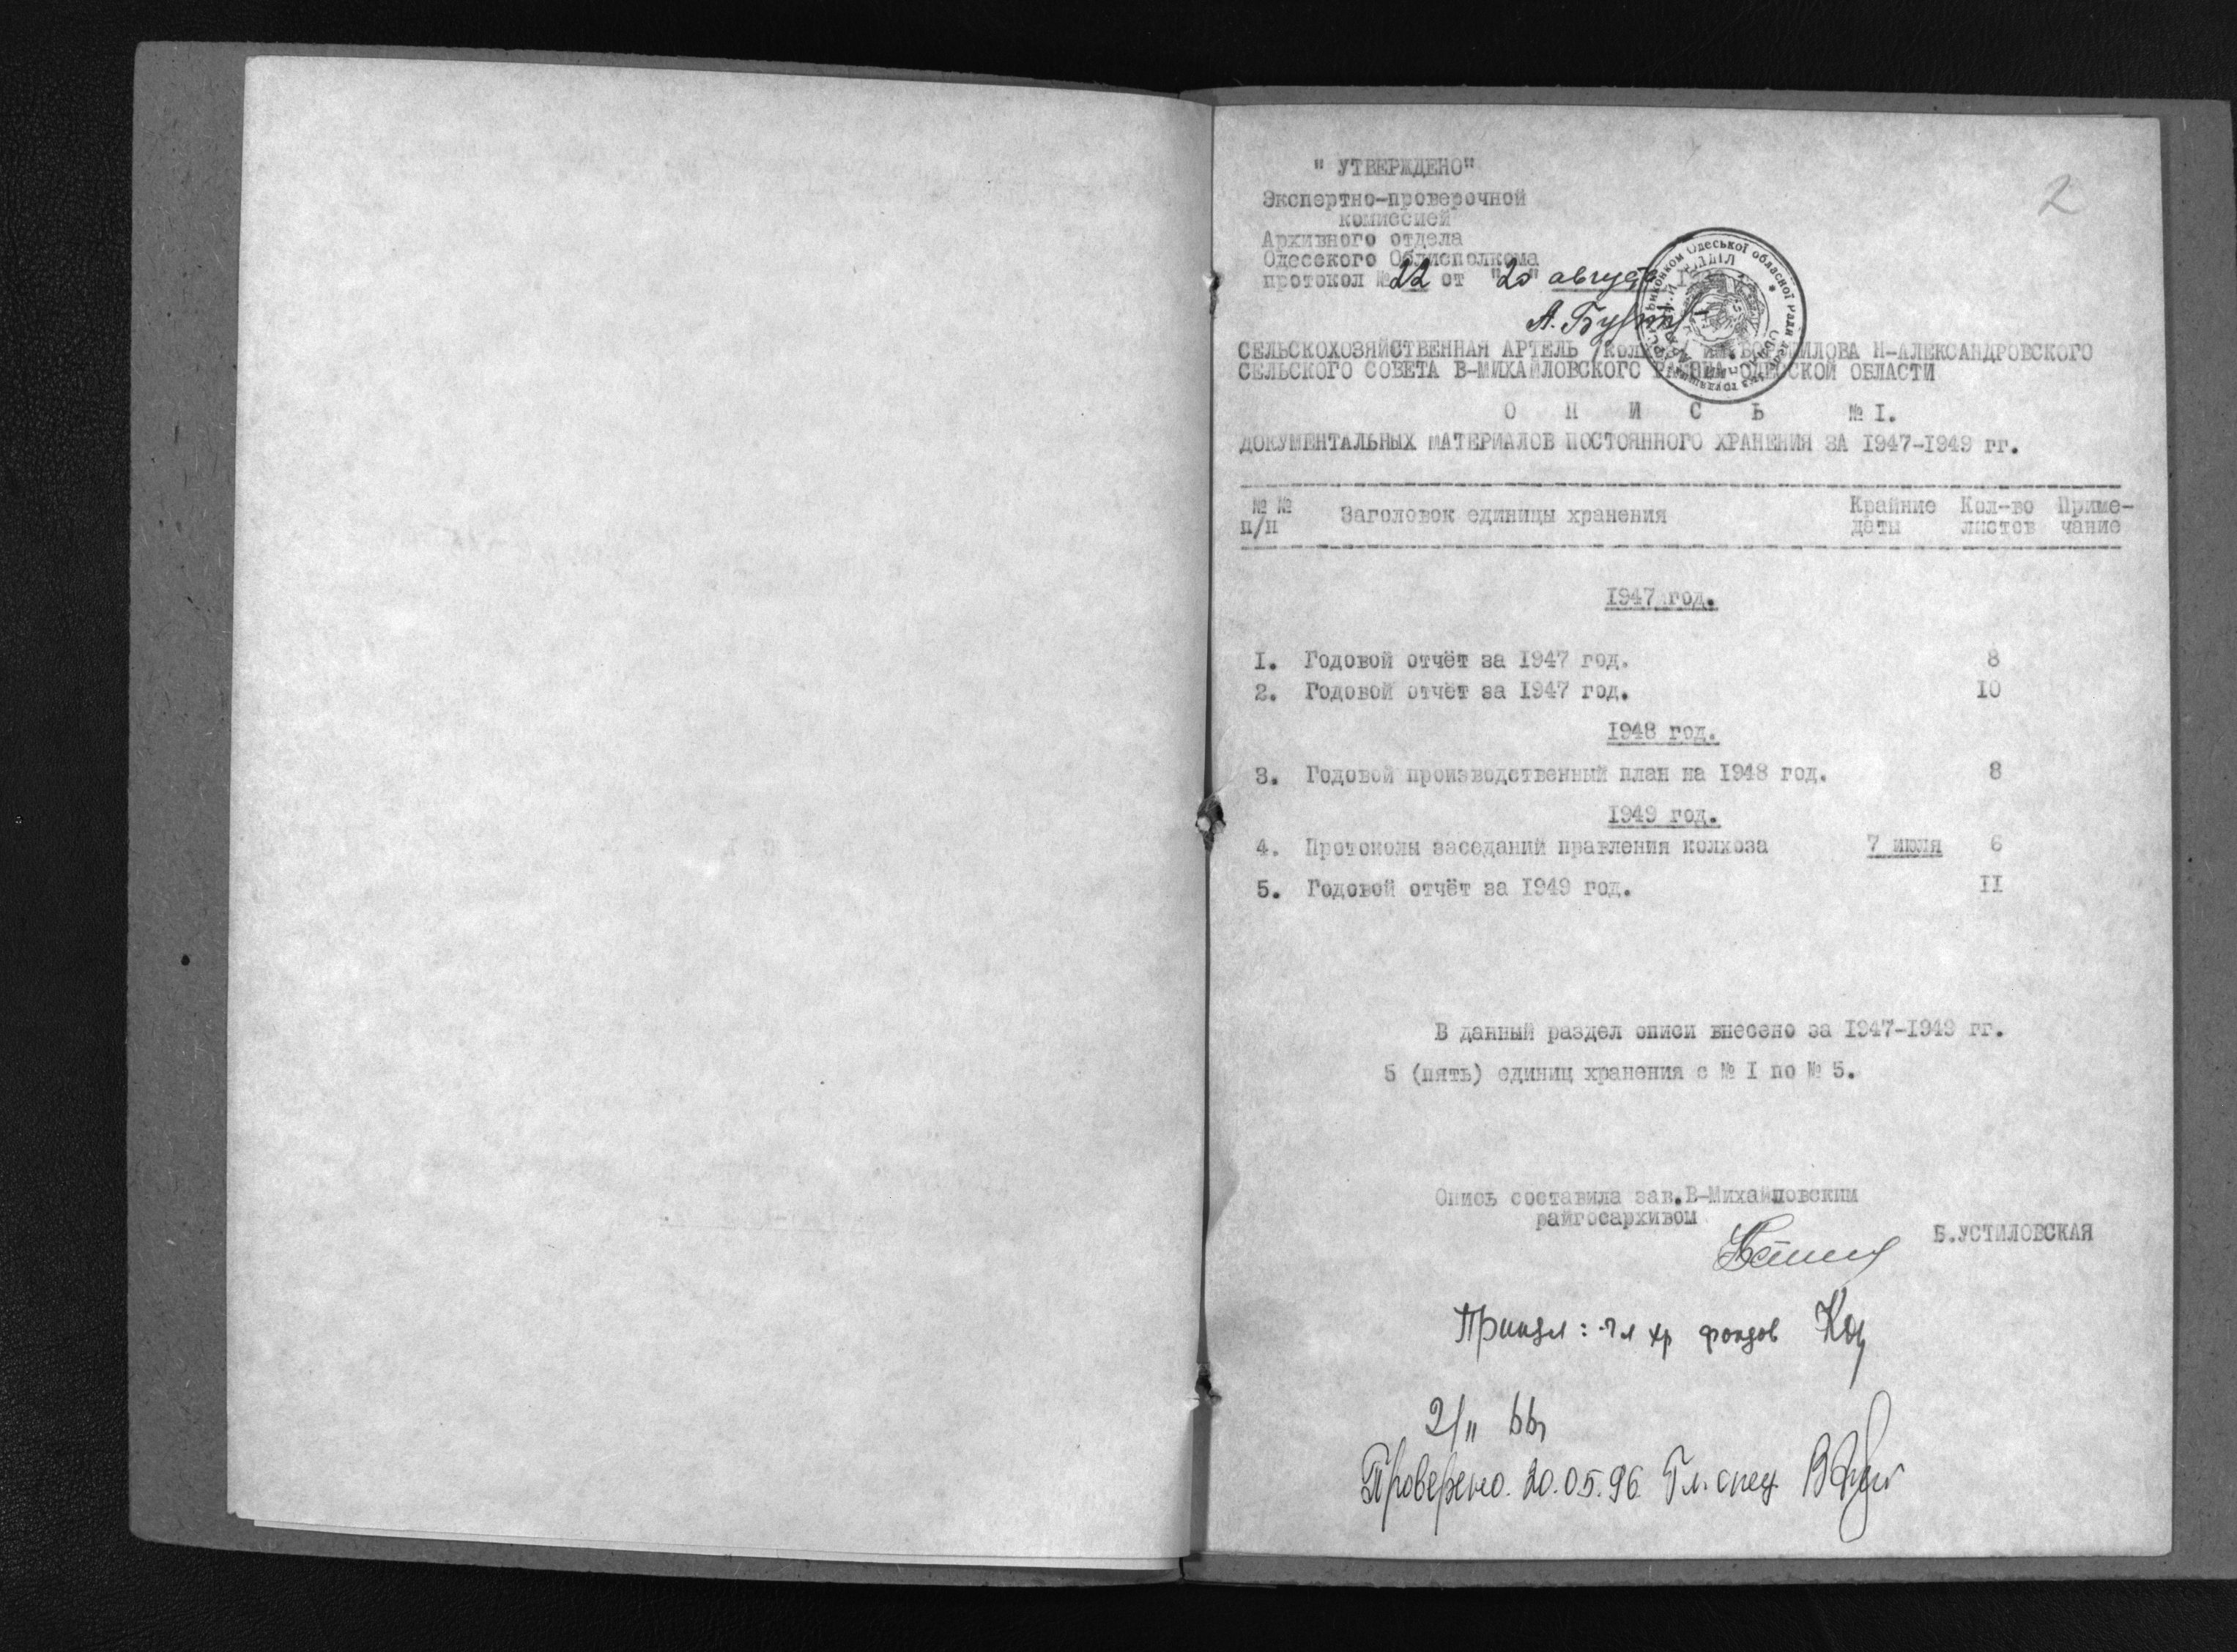 2
" УТВЕРЖДЕНО"
Экспертно-проверочной
комиссией
Архивного отдела
Одесского Облисполкома
протокол № 22 от "20" август
СЕЛЬСКОХОЗЯЙСТВЕННАЯ АРТЕЛЬ Н-АЛЕКСАНДРОВСКОГО
СЕЛЬСКОГО СОВЕТА В-МИХАЙЛОВСКОГО РАЙОНА ОДЕССКОЙ ОБЛАСТИ
О П И С Ь № I.
ДОКУМЕНТАЛЬНЫХ МАТЕРИАЛОВ ПОСТОЯННОГО ХРАНЕНИЯ ЗА 1947-1949 гг.
№ № п/п Заголовок единицы хранения Крайние даты Кол-во листов Приме-чание
1947 год.
I. Годовой отчёт за 1947 год. 8
2. Годовой отчёт за 1947 год. 10
1948 год.
3. Годовой производственный план на 1948 год. 8
1949 год.
4. Протоколы заседаний правления колхоза 7 июля 6
5. Годовой отчёт за 1949 год. II
В данный раздел описи внесено за 1947-1949 гг.
5 (пять) единиц хранения с № I по № 5.
Опись составила зав.В-Михайловским
райгосархивом
Б.УСТИЛОВСКАЯ
хр фондов
Проверено. 20.05.96. Гл. спец